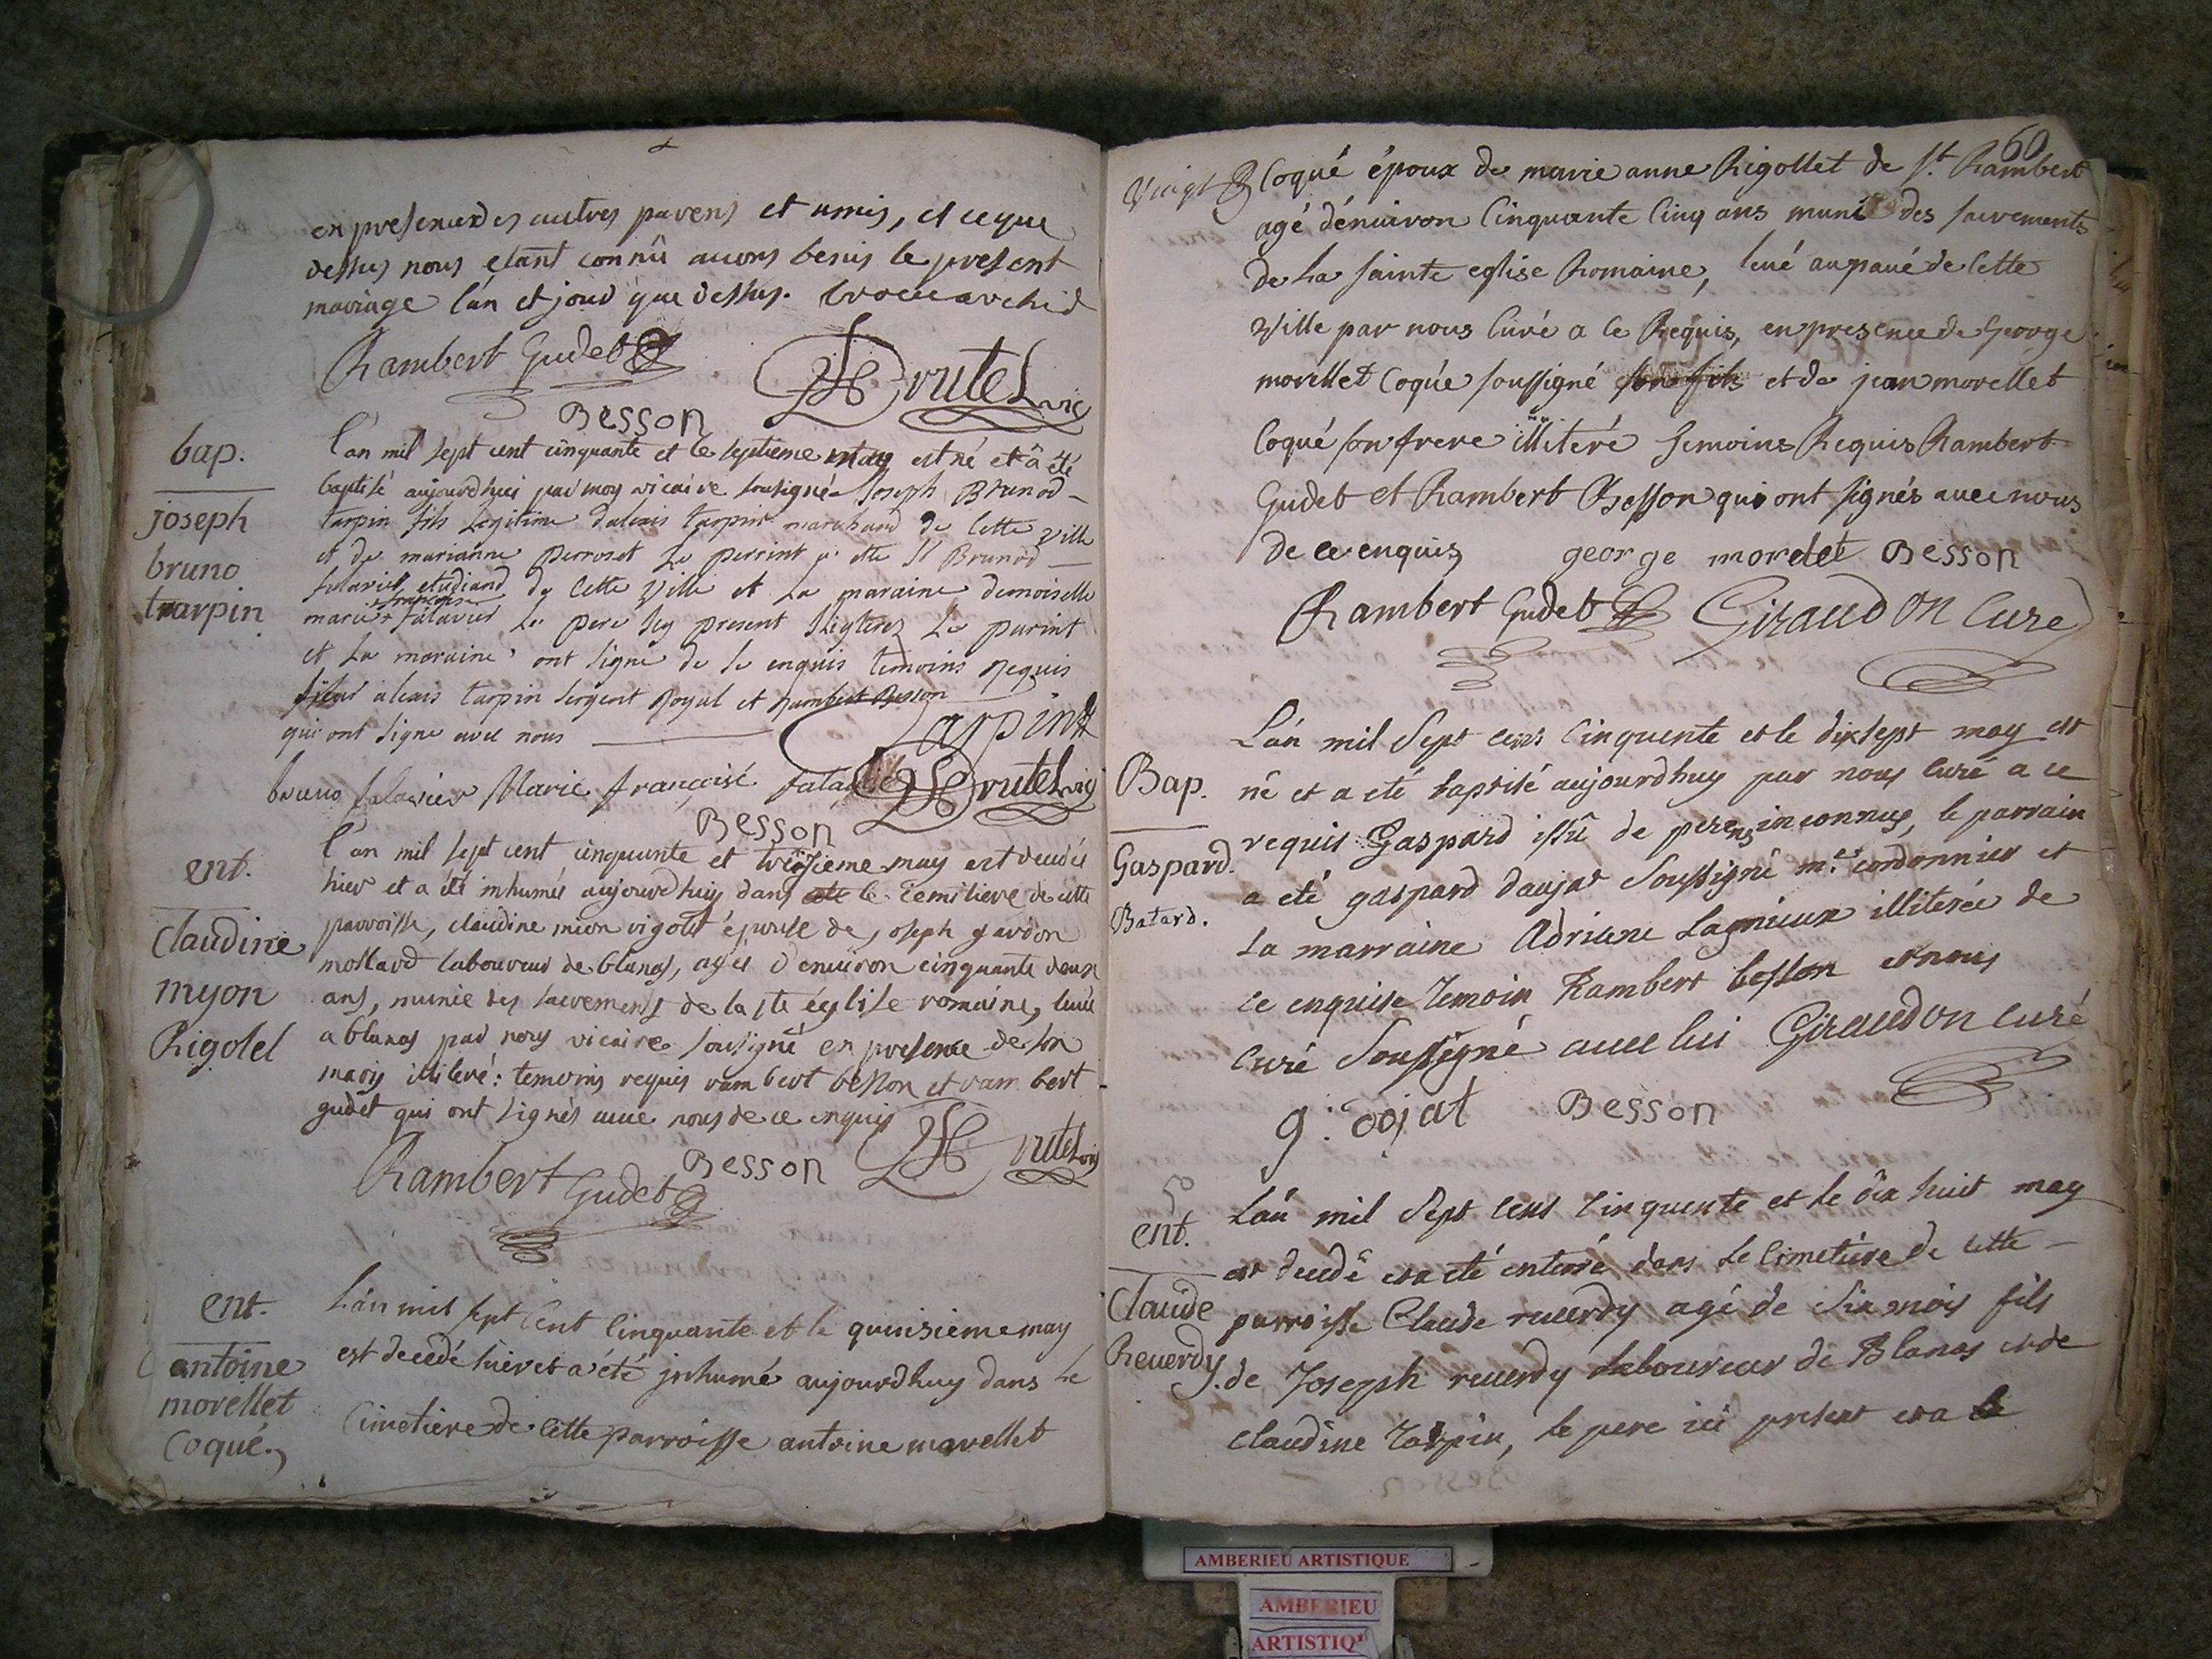 en presence des autres parens et amis, et ce que
dessus nous etant connû avons benis le present
mariage l'an et jour que dessus.
Rambert Gudet Brutel vic
Besson
bap.
joseph
bruno
tarpin
l'an mil sept cent cinquante et le septieme may est né et â été
baptisé aujourdhui par moy vicaire sousigné Joseph Brunod
tarpin fils legitime dalexis tarpin marchand de cette ville
et de marianne perroset Le perrint a ette Sr Brunod
falavier etudiand de cette ville et La maraine demoiselle
marie francoise falavier Le pere icy present Le parint
et La maraine ont signe de ce enquis temoins requis
sieur alexis tarpin sergent Royal et Rambert Besson
qui ont signe avec nous Tarpin
bruno falavier Marie françoise falavier Brutel vic
Besson
ent.
Claudine
myon
Rigolet
l'an mil sept cent cinquante et troizieme may est decedée
hier et a été inhumée aujourdhuy dans le cemitiere de cette
parroisse, claudine mion rigolet épouse de joseph gardon
mollard laboureur de blanas, agée d'environ cinquante deux
ans, munie des sacrements de la ste église romaine, levée
a blanas par nous vicaire sousigné en presence de son
mary illiteré: temoins requis rambert besson et rambert
gudet qui ont signés avec nous de ce enquis
Rambert Gudet Besson Brutel vic
ent.
antoine
morellet
Coqué.
L'an mil sept Cent Cinquante et le quinsieme may
est decedé hier et a été jnhumé aujourdhuy dans Le
Cimetiere de Cette parroisse antoine morellet
60
Vingt
Coqué époux de marie anne Rigollet de St. Rambert
agé dénviron Cinquante Cinq ans muni des sacrements
de La sainte eglise Romaine, levé au pavé de Cette
Ville par nous Curé a Ce Requis, en presence de George
morellet Coqué soussigné son fils et de jean morellet
Coqué son frere illiteré temoins Requis Rambert
Gudet et Rambert Besson qui ont signés avec nous
de ce enquis george morelet Besson
Rambert Gudet Giraudon Curé
Bap.
Gaspard.
Batard.
L'an mil Sept cens Cinquente et le dixsept may est
né et a eté baptisé aujourdhuy par nous curé a ce
requis Gaspard issû de perens inconnus, le parrain
a eté gaspard daujat Soussigné me. cordonnier et
La marraine Adriene Lagnieux illiterée de
ce enquise Temoin Rambert besson et nous
curé Soussigné avec lui Giraudon curé
g: dojat Besson
ent.
Claude
Reverdy.
L'an mil Sept Cens Cinquente et le dix huit may
est decedé et a eté enterré dans Le Cimetiére de cette
parroisse Claude reverdy agé de six mois fils
de Joseph reverdy Laboureur de Blanas et de
claudine Tarpin, le pere ici present et a
Besson
AMBERIEU ARTISTIQUE
AMBERIEU
ARTISTIQ